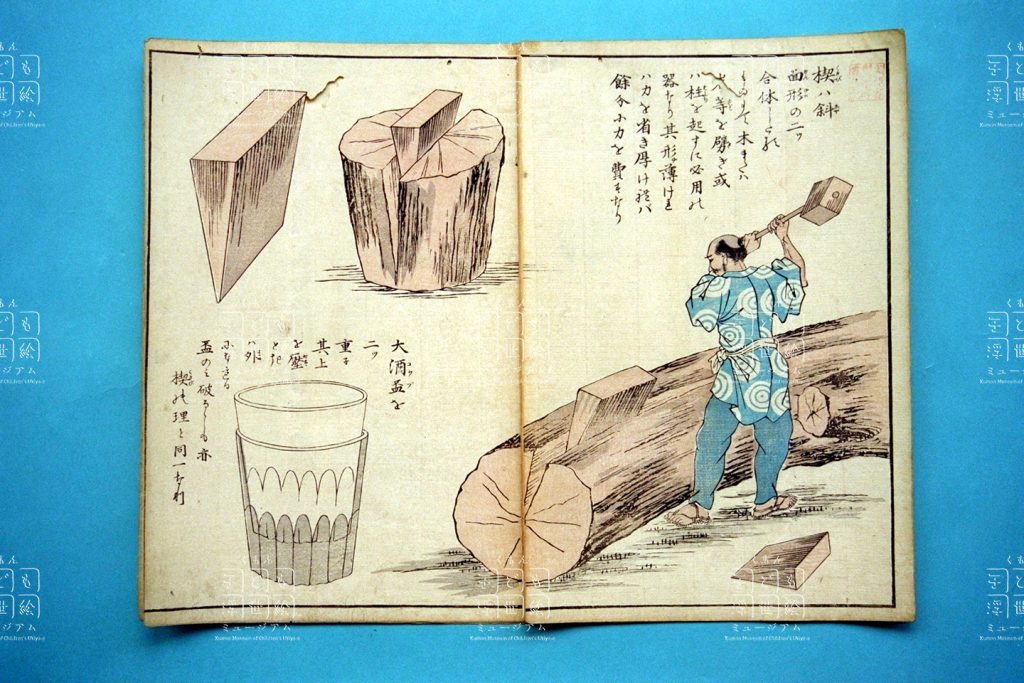 楔ハ斜
面形の二ツ
合体し
ものにて木または
等を劈き或
ハ柱を起すに必用の
器なり其形薄けれ
ハ力を省き厚けれバ
餘分に力を費すなり
大酒盃を
二ツ
重ね
其上
を壓
とき
ハ外
になりたる
盃のミ破るゝも亦
楔の理と同一なり
くもん
子ども
浮世絵
ミュージアム
Kumon Museum of Children's Ukiyo-e